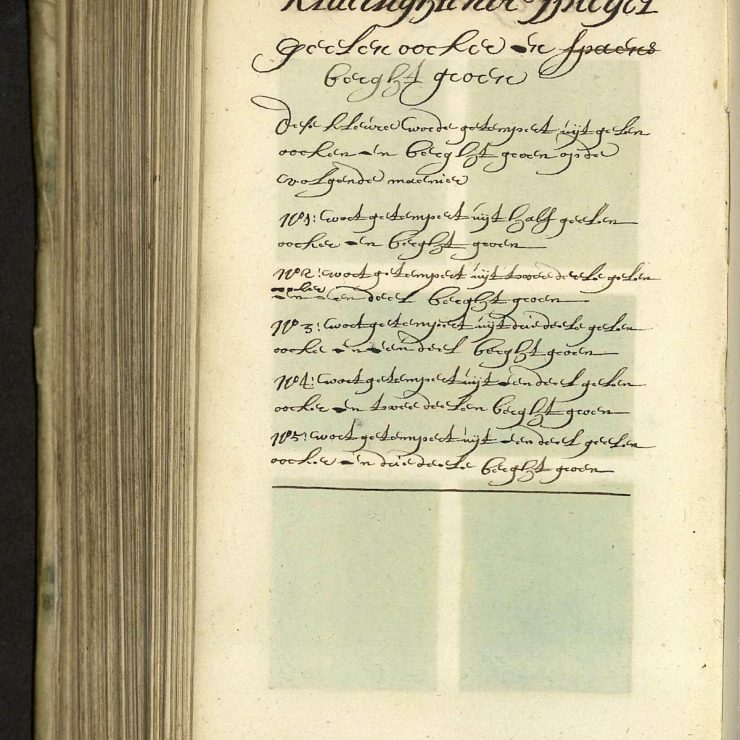 Klaerlightende Spiegel
Geelen oocker en ~~spaens~~
berght groen
Dese kleuren worde getempert uijt gelen
oocker en berght groen op de
volgende manier
No 1: wort getempert uijt half geelen
oocker en berght groen
No 2: wort getempert uijt twee deele gelen
oocker
en een deel berght groen
No 3: wort getempert uijt drie deele gelen
oocker en een deel berght groen
No 4: wort getempert uijt een deel gelen
oocker en twee deelen berght groen
No 5: wort getempert uijt een deel geelen
oocker en drie deele berght groen